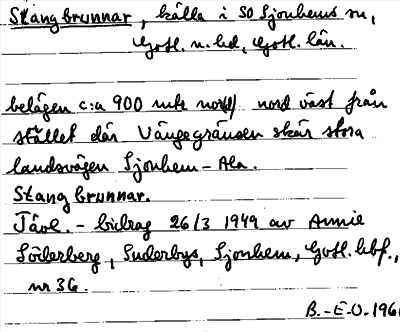 Stangbrunnar, källa i SO Sjonhems sn,
Gotl. n. hd, Gotl. län.
belägen c:a 900 mtr nord väst från
stället där Vängegränsen skär stora
landsvägen Sjonhem – Ala.
Stangbrunnar.
Tävl. – bidrag 26/3 1949 av Annie
Söderberg, Suderbys, Sjonhem, Gotl. hbf.,
nr 36.
B.-E.O. 196